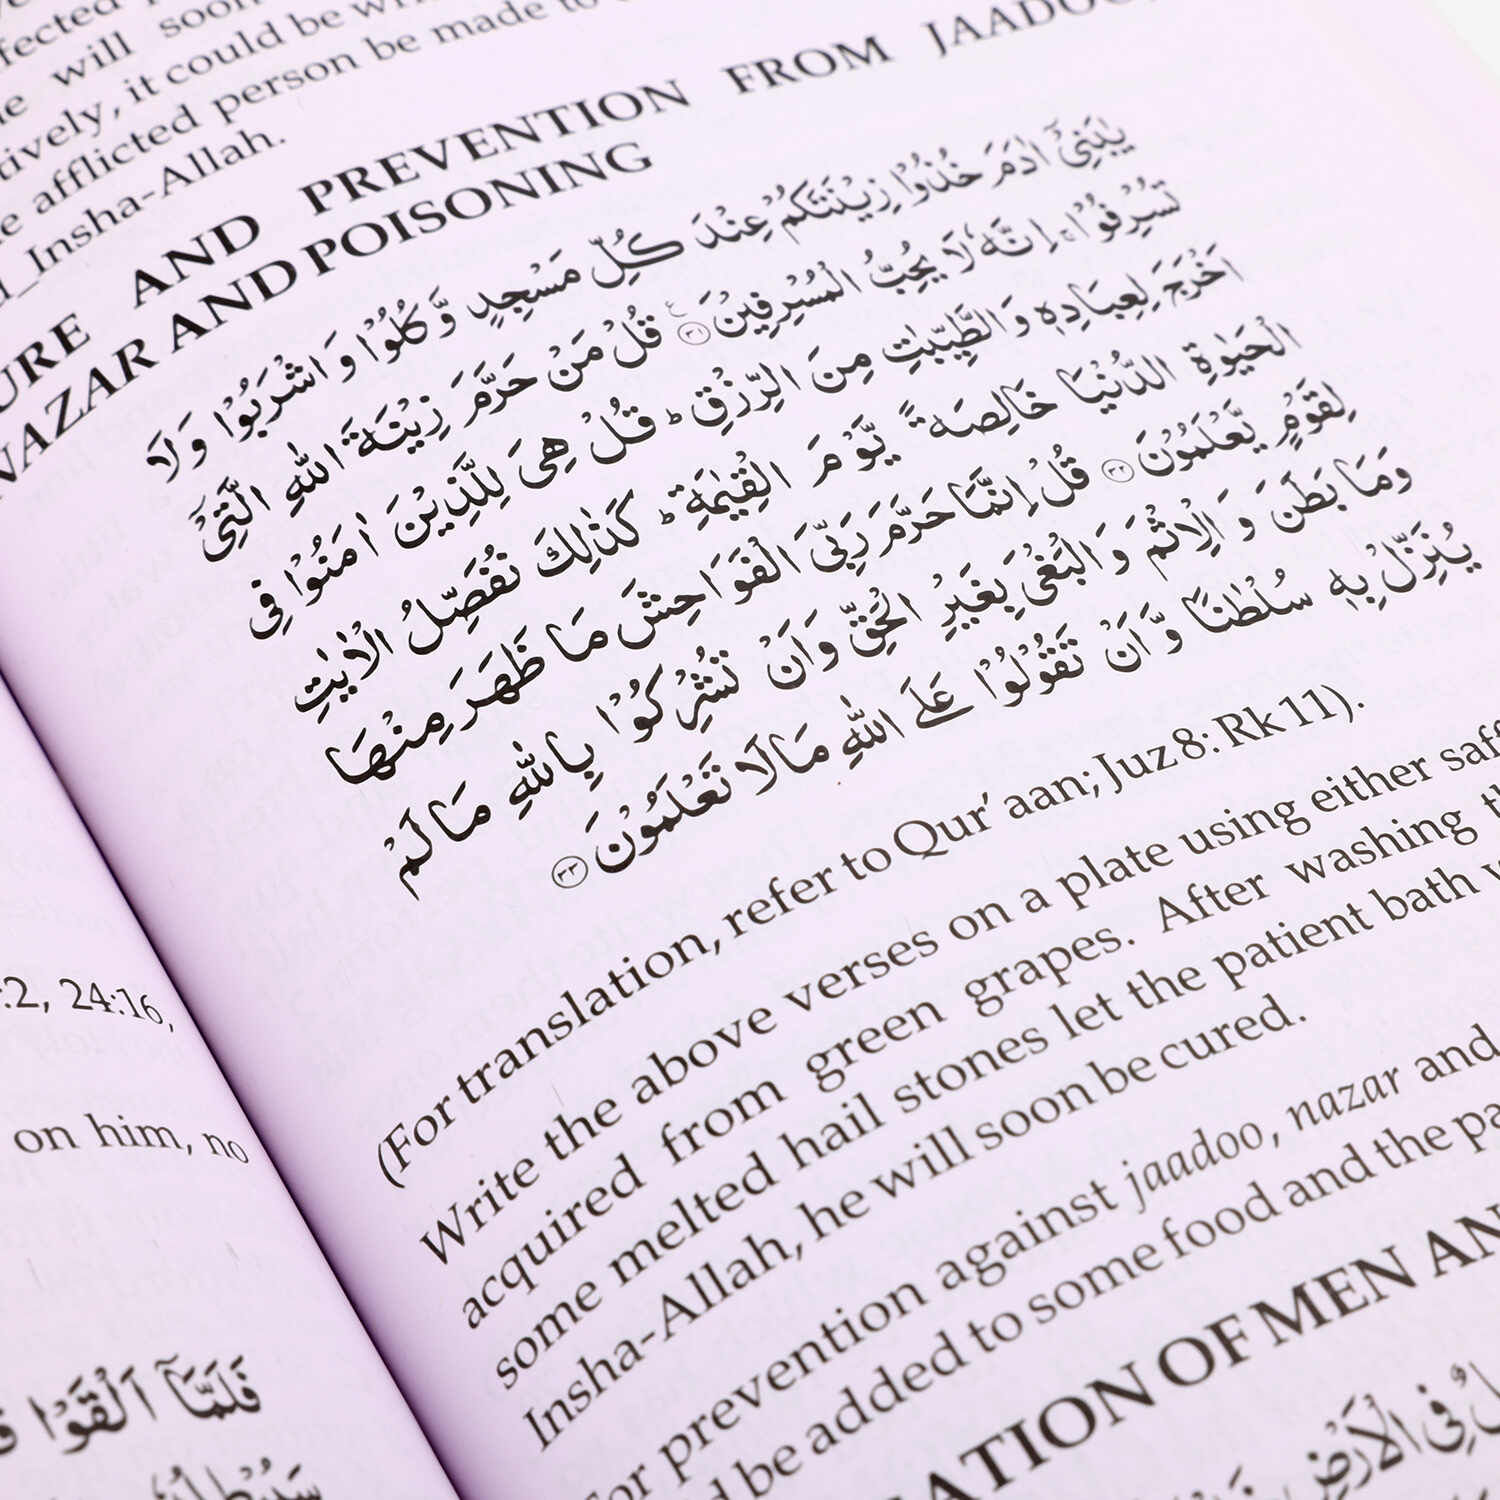 will soon
tively, it could be
afflicted person be made to
Insha-Allah.
AND PREVENTION FROM
NAZAR AND POISONING
يٰبَنِىْٓ اٰدَمَ خُذُوْا زِيْنَتَكُمْ عِنْدَ كُلِّ مَسْجِدٍ وَّ كُلُوْا وَ اشْرَبُوْا وَ لَا
تُسْرِفُوْا ۚ اِنَّهٗ لَا يُحِبُّ الْمُسْرِفِيْنَ ۝٣١ ع قُلْ مَنْ حَرَّمَ زِيْنَةَ اللّٰهِ الَّتِىْٓ
اَخْرَجَ لِعِبَادِهٖ وَ الطَّيِّبٰتِ مِنَ الرِّزْقِ ؕ قُلْ هِىَ لِلَّذِيْنَ اٰمَنُوْا فِى
الْحَيٰوةِ الدُّنْيَا خَالِصَةً يَّوْمَ الْقِيٰمَةِ ؕ كَذٰلِكَ نُفَصِّلُ الْاٰيٰتِ
لِقَوْمٍ يَّعْلَمُوْنَ ۝٣٢ قُلْ اِنَّمَا حَرَّمَ رَبِّىَ الْفَوَاحِشَ مَا ظَهَرَ مِنْهَا
وَمَا بَطَنَ وَ الْاِثْمَ وَ الْبَغْىَ بِغَيْرِ الْحَقِّ وَ اَنْ تُشْرِكُوْا بِاللّٰهِ مَا لَمْ
يُنَزِّلْ بِهٖ سُلْطٰنًا وَّ اَنْ تَقُوْلُوْا عَلَى اللّٰهِ مَا لَا تَعْلَمُوْنَ ۝٣٣
(For translation, refer to Qur'aan; Juz 8: Rk 11).
Write the above verses on a plate using either
acquired from green grapes. After washing
some melted hail stones let the patient bath
Insha-Allah, he will soon be cured.
prevention against jaadoo, nazar and
be added to some food and the
OF MEN
فِى الْاَرْضِ
:2, 24:16,
on him, no
فَلَمَّآ اَلْقَوْا